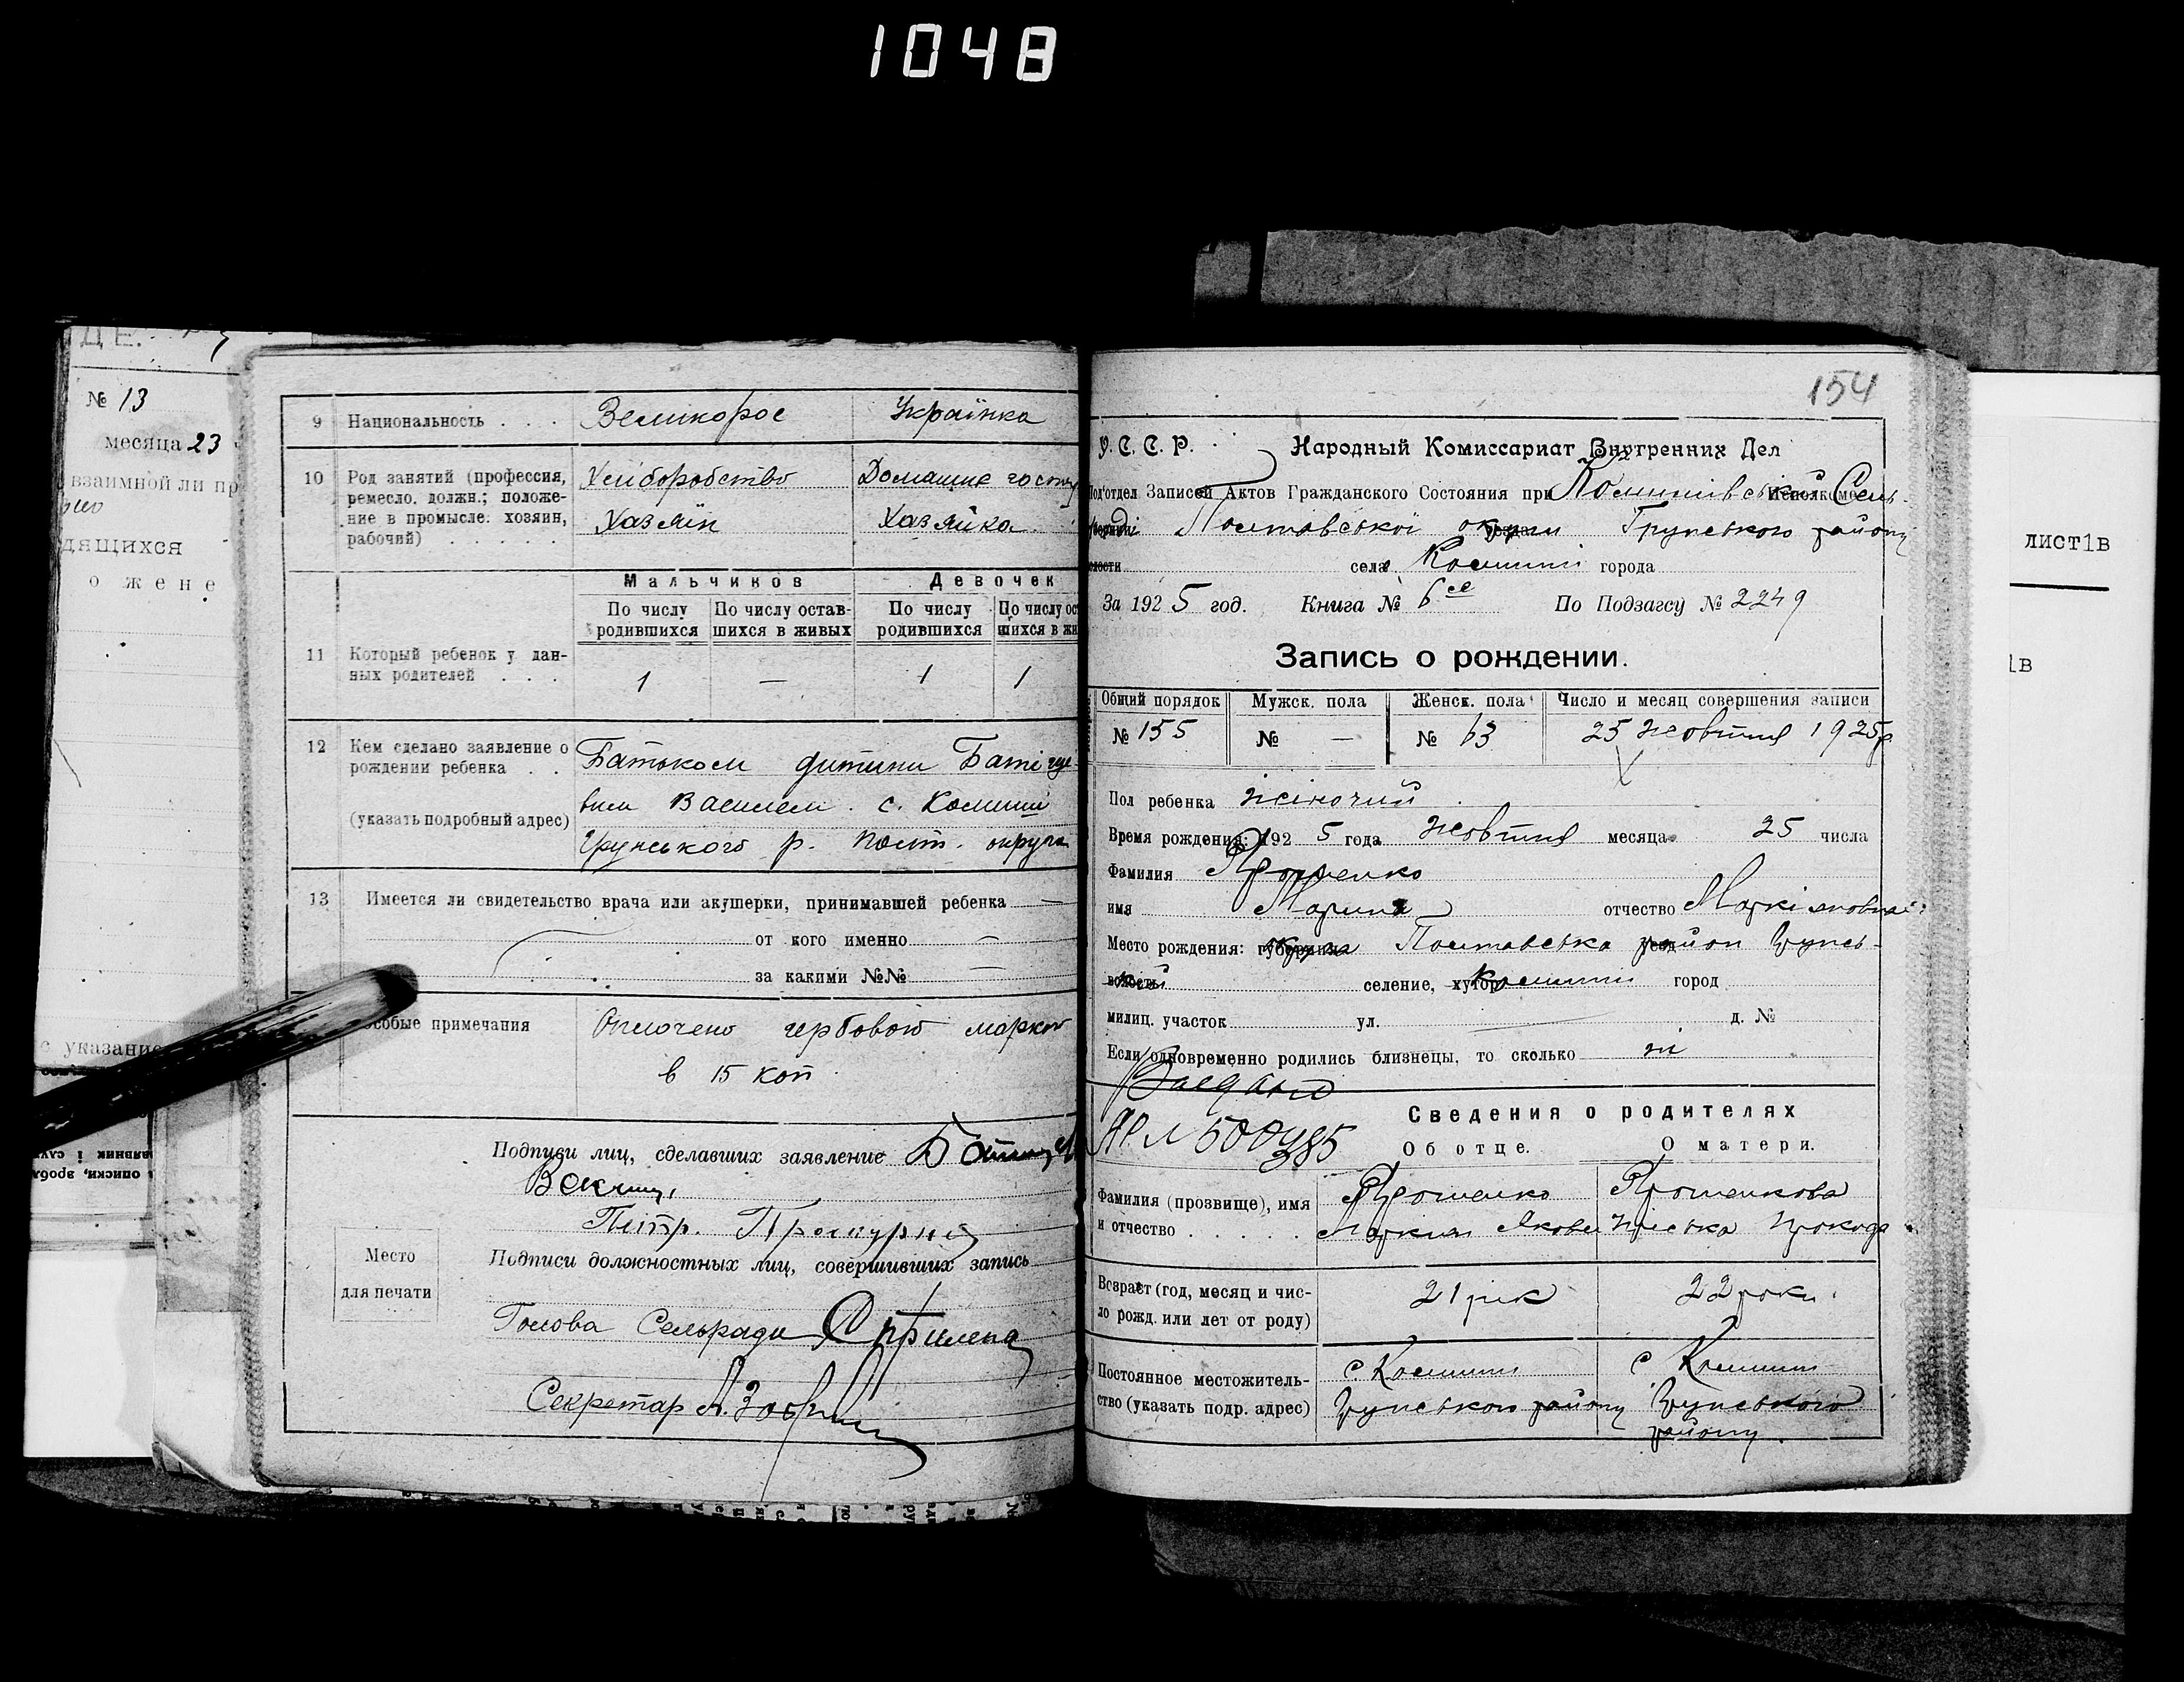 1048
ДЕ.
№ 13
месяца 23
взаимной ли пр
дящихся
о жене
с указание
9 Национальность . . . Великорос Українка
10 Род занятий (профессия, ремесло, должн.; положение в промысле: хозяин, рабочий) . . . . .
Хліборобство Домашнє госпо
Хазяїн Хазяйка
Мальчиков Девочек
По числу родившихся По числу оставшихся в живых По числу родившихся По числу ос
шихся в жи
11 Который ребенок у данных родителей . . . 1 — 1 1
12 Кем сделано заявление о рождении ребенка . .
(указать подробный адрес)
Батьком дитини
вим Василем с. Комиші
Грунського р. Полт. округа
13 Имеется ли свидетельство врача или акушерки, принимавшей ребенка —
от кого именно —
за какими №№ —
особые примечания Оплочено гербовою маркою
в 15 коп
Подписи лиц, сделавших заявление
Подписи должностных лиц, совершивших запись
Место
для печати
Голова Сельради
Секретар А.
154
У.С.С.Р. Народный Комиссариат Внутренних Дел
Под'отдел Записей Актов Гражданского Состояния при Комишівській Сель-
раді Полтавської округи Грунського району
села Комиші города
За 1925 год. Книга № 6 По Подзагсу № 2249
Запись о рождении.
Общий порядок Мужск. пола Женск. пола Число и месяц совершения записи
№ 155 № — № 63 25 жовтня 1925р.
Пол ребенка жіночий
Время рождения: 1925 года жовтня месяца 25 числа
Фамилия Ярошенко
имя Марина отчество Маркіяновна
Место рождения: округа Полтавська район Грунсь-
кий селение, хутор Комиші город
милиц. участок ул. — д. №
Если одновременно родились близнецы, то сколько ні
Сведения о родителях
Об отце. О матери.
Фамилия (прозвище), имя Ярошенко Ярошенкова
и отчество . . . . . Маркіян Якове Пріська
Возраст (год, месяц и чис- 21 рік 22 роки
ло рожд. или лет от роду)
Постоянное местожитель- с. Комиші с. Комиші
ство (указать подр. адрес) Грунського району Грунського
району.
лист1в
1в